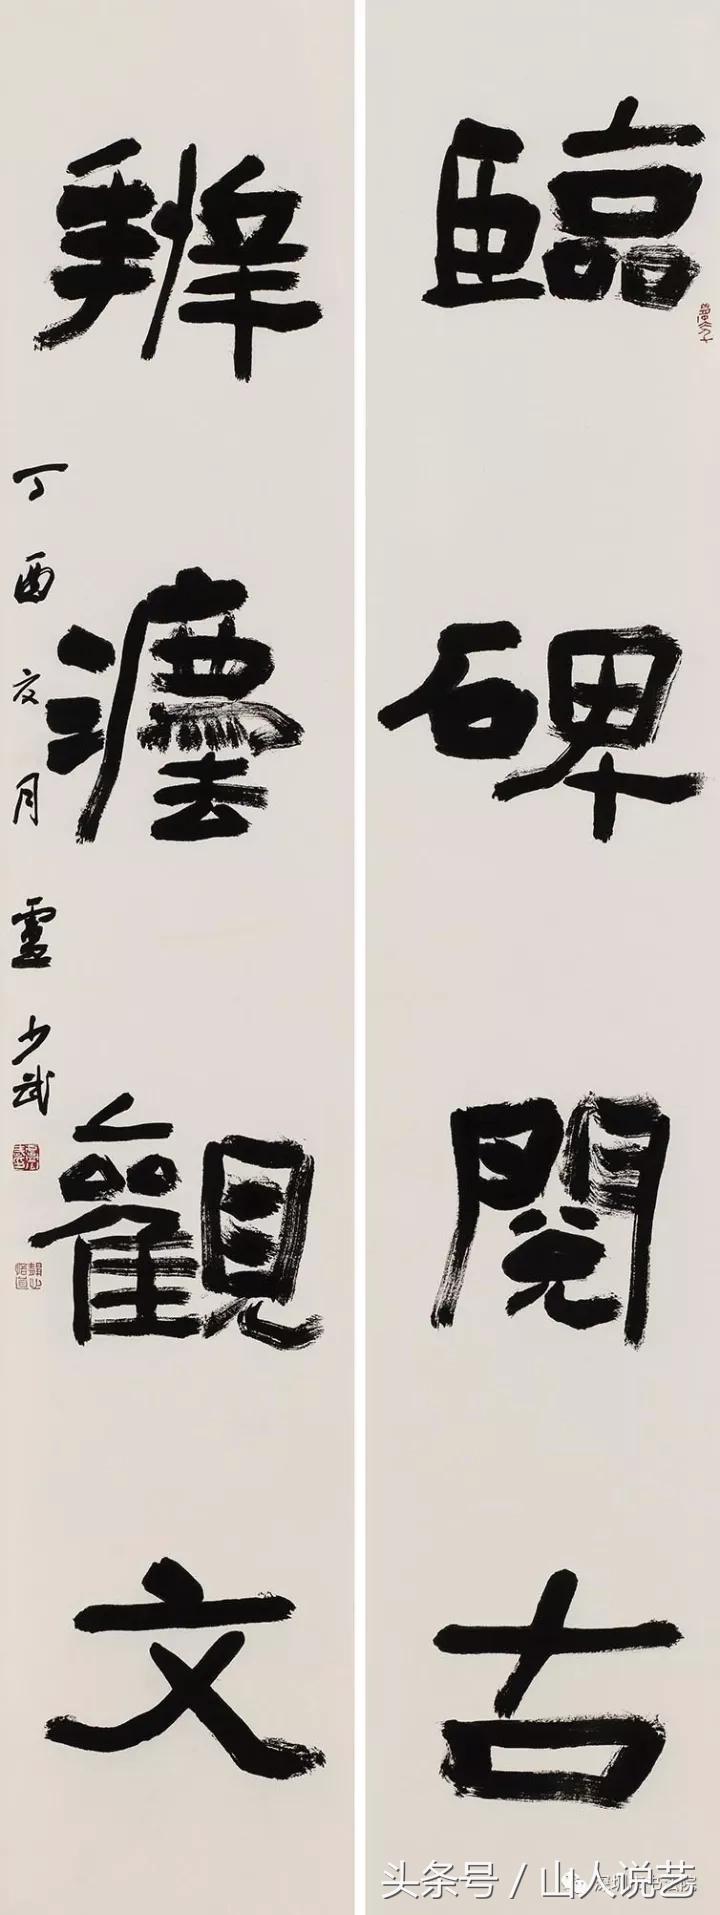 臨碑閱古
辨灋觀文
丁酉夏月盧少武
头条号 / 山人说艺